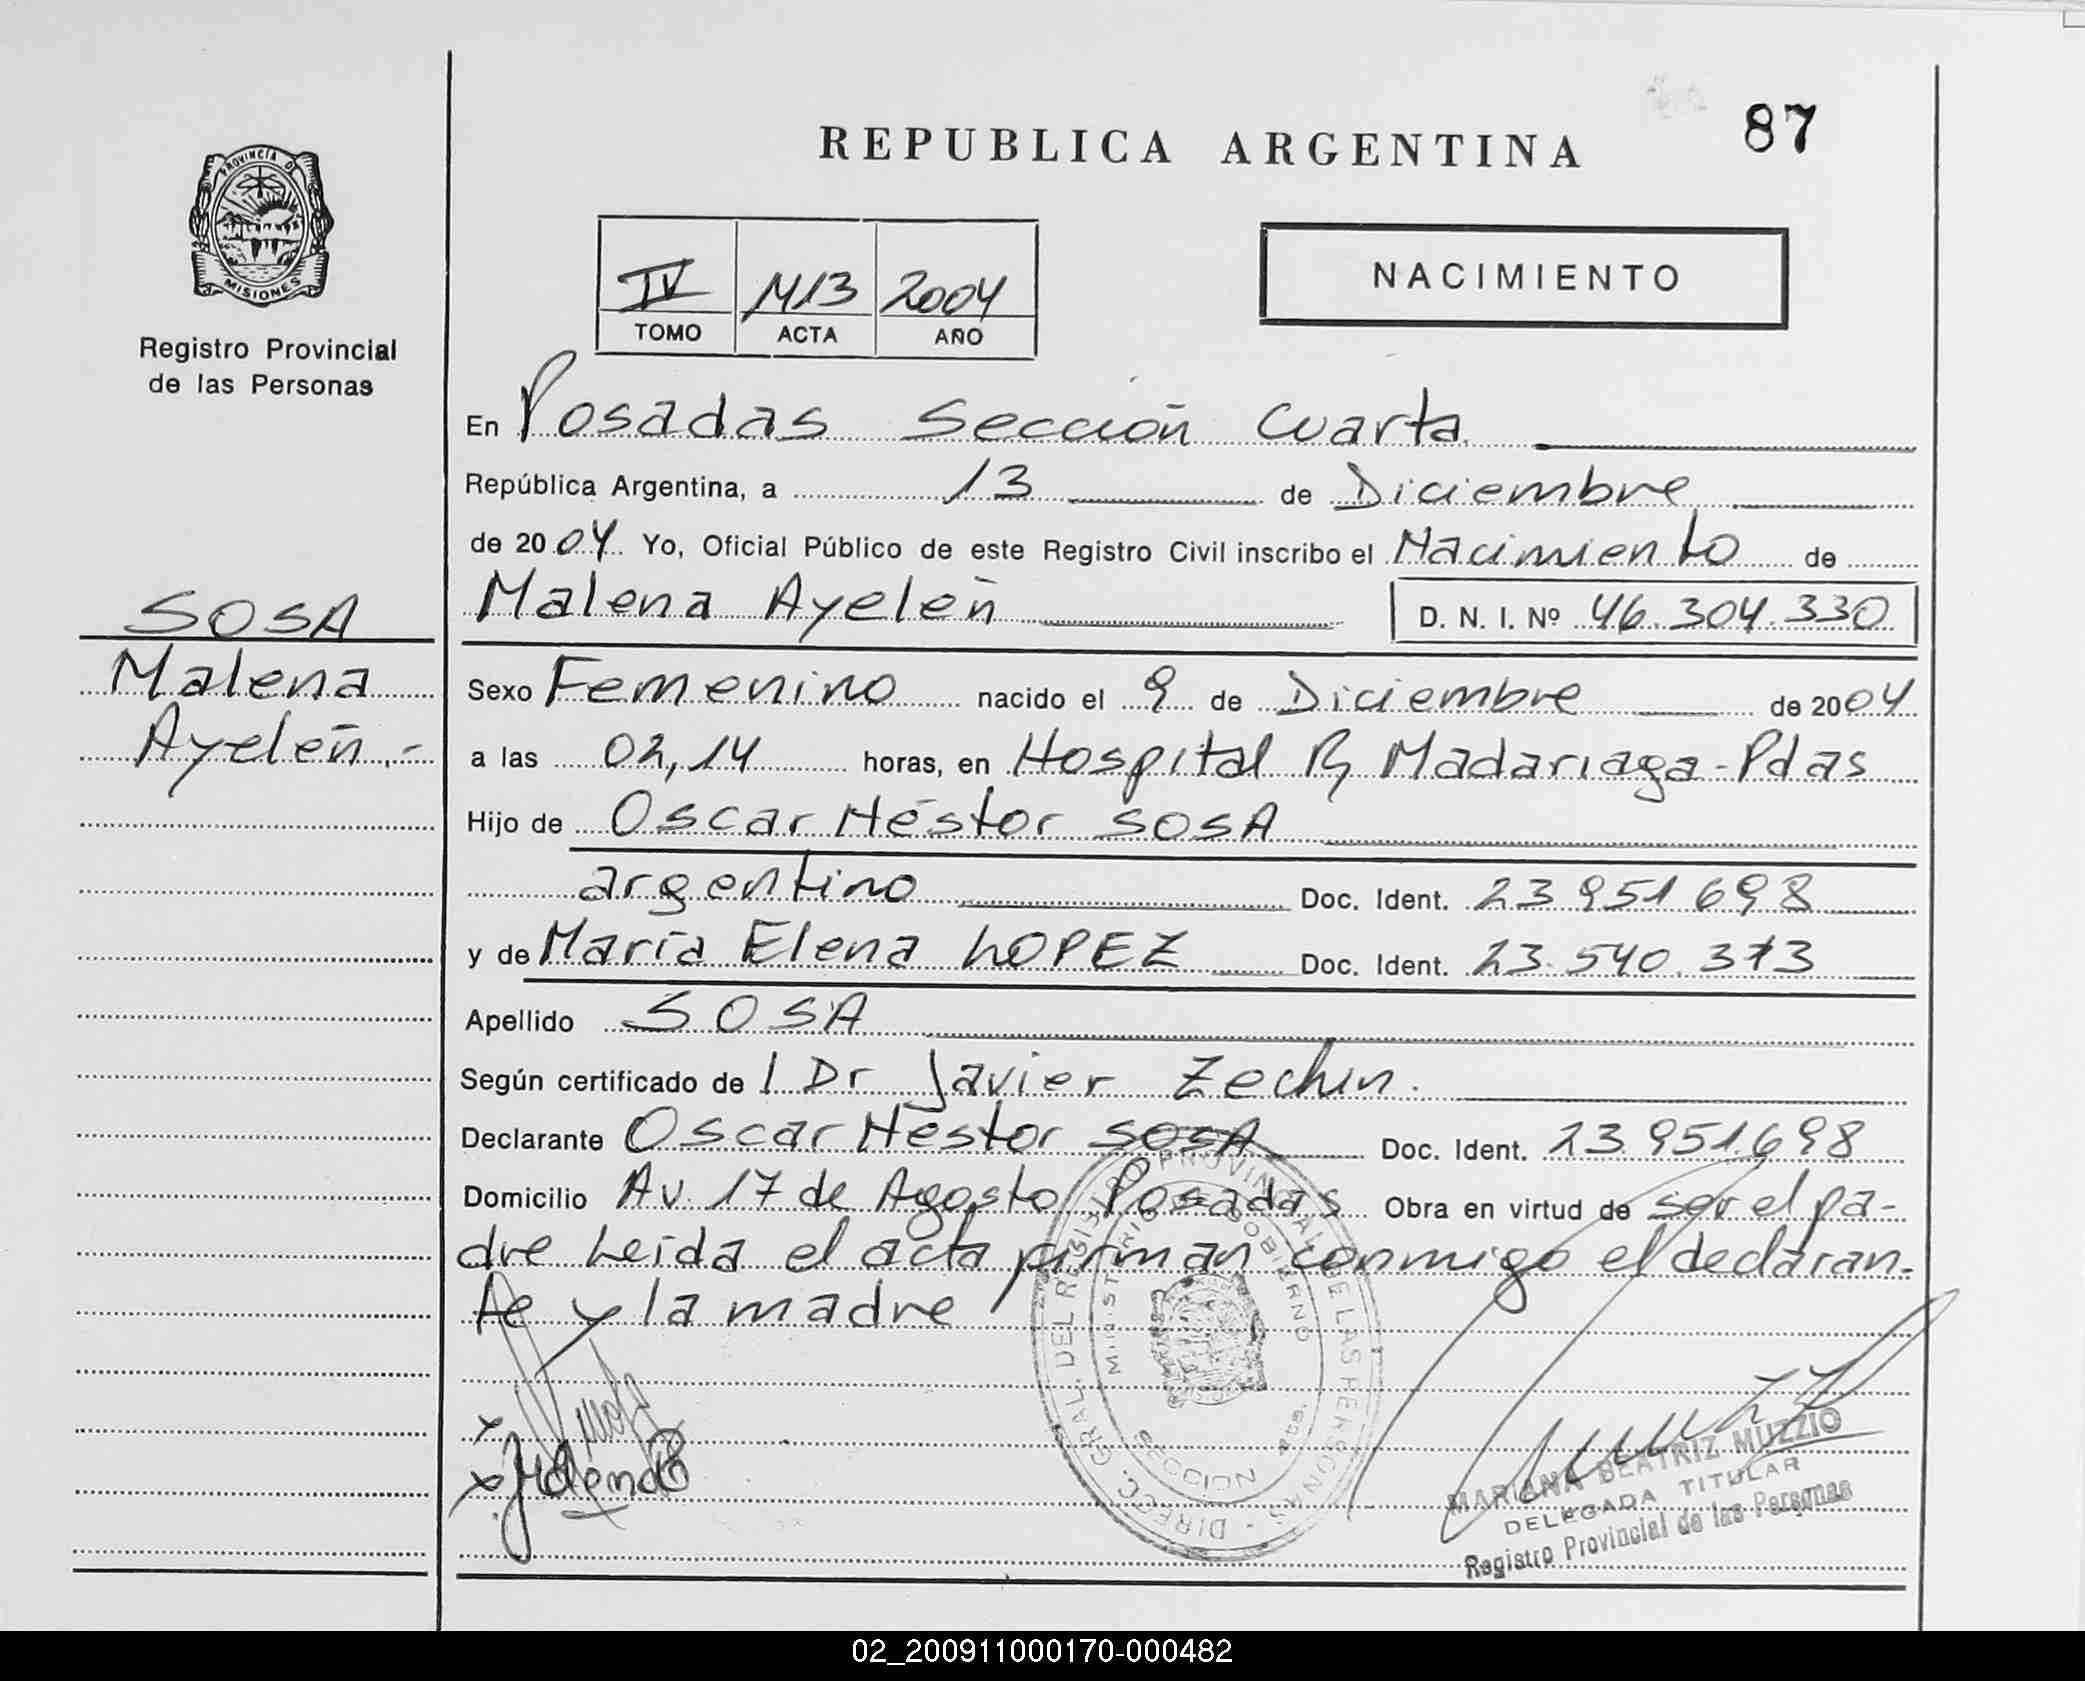 REPUBLICA ARGENTINA
87
PROVINCIA DE
MISIONES
Registro Provincial
de las Personas
IV 1113 2004
TOMO ACTA AÑO
NACIMIENTO
En Posadas Sección Cuarta
República Argentina, a 13 de Diciembre
de 2004 Yo, Oficial Público de este Registro Civil inscribo el Nacimiento de
Malena Ayelén D. N. I. Nº 46.304.330
SOSA
Malena
Ayelén.-
Sexo Femenino nacido el 9 de Diciembre de 2004
a las 02,14 horas, en Hospital R Madariaga-Pdas
Hijo de Oscar Néstor SOSA
argentino Doc. Ident. 23.951.698
y de María Elena LOPEZ Doc. Ident. 23.540.373
Apellido SOSA
Según certificado de l Dr Javier Zechin.
Declarante Oscar Néstor SOSA Doc. Ident. 23.951.698
Domicilio Av. 17 de Agosto Posadas Obra en virtud de ser el pa-
dre Leída el acta firman conmigo el declaran-
te y la madre
DIRECC. GRAL. DEL REGISTRO PROVINCIAL DE LAS PERSONAS
MINISTERIO DE GOBIERNO
MARIANA BEATRIZ MUZZIO
DELEGADA TITULAR
Registro Provincial de las Personas
02_200911000170-000482